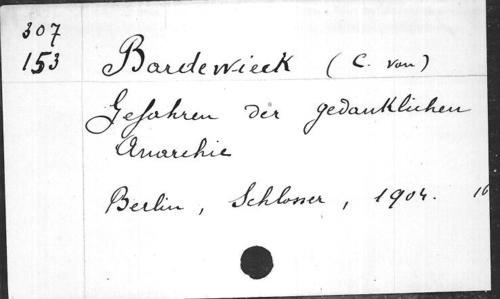 307
153
Bardewieck (C. von)
Gefahren der gedanklichen
Anarchie
Berlin, Schlosser, 1904. 16